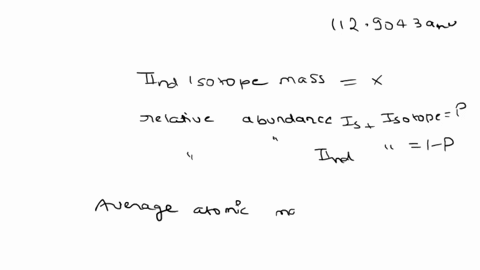 112.9043amu
IInd isotope mass = x
relative abundance Ist Isotope = P
" " IInd " = 1-P
Average atomic ma